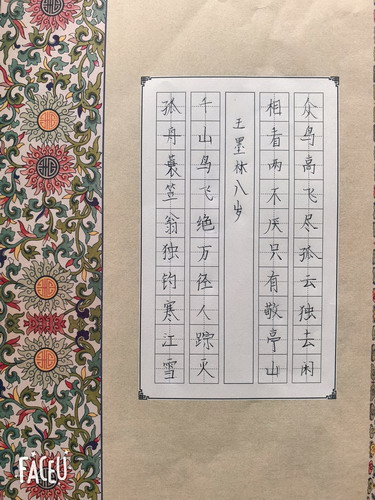 众鸟高飞尽孤云独去闲
相看两不厌只有敬亭山
王墨林八岁
千山鸟飞绝万径人踪灭
孤舟蓑笠翁独钓寒江雪
FACEU